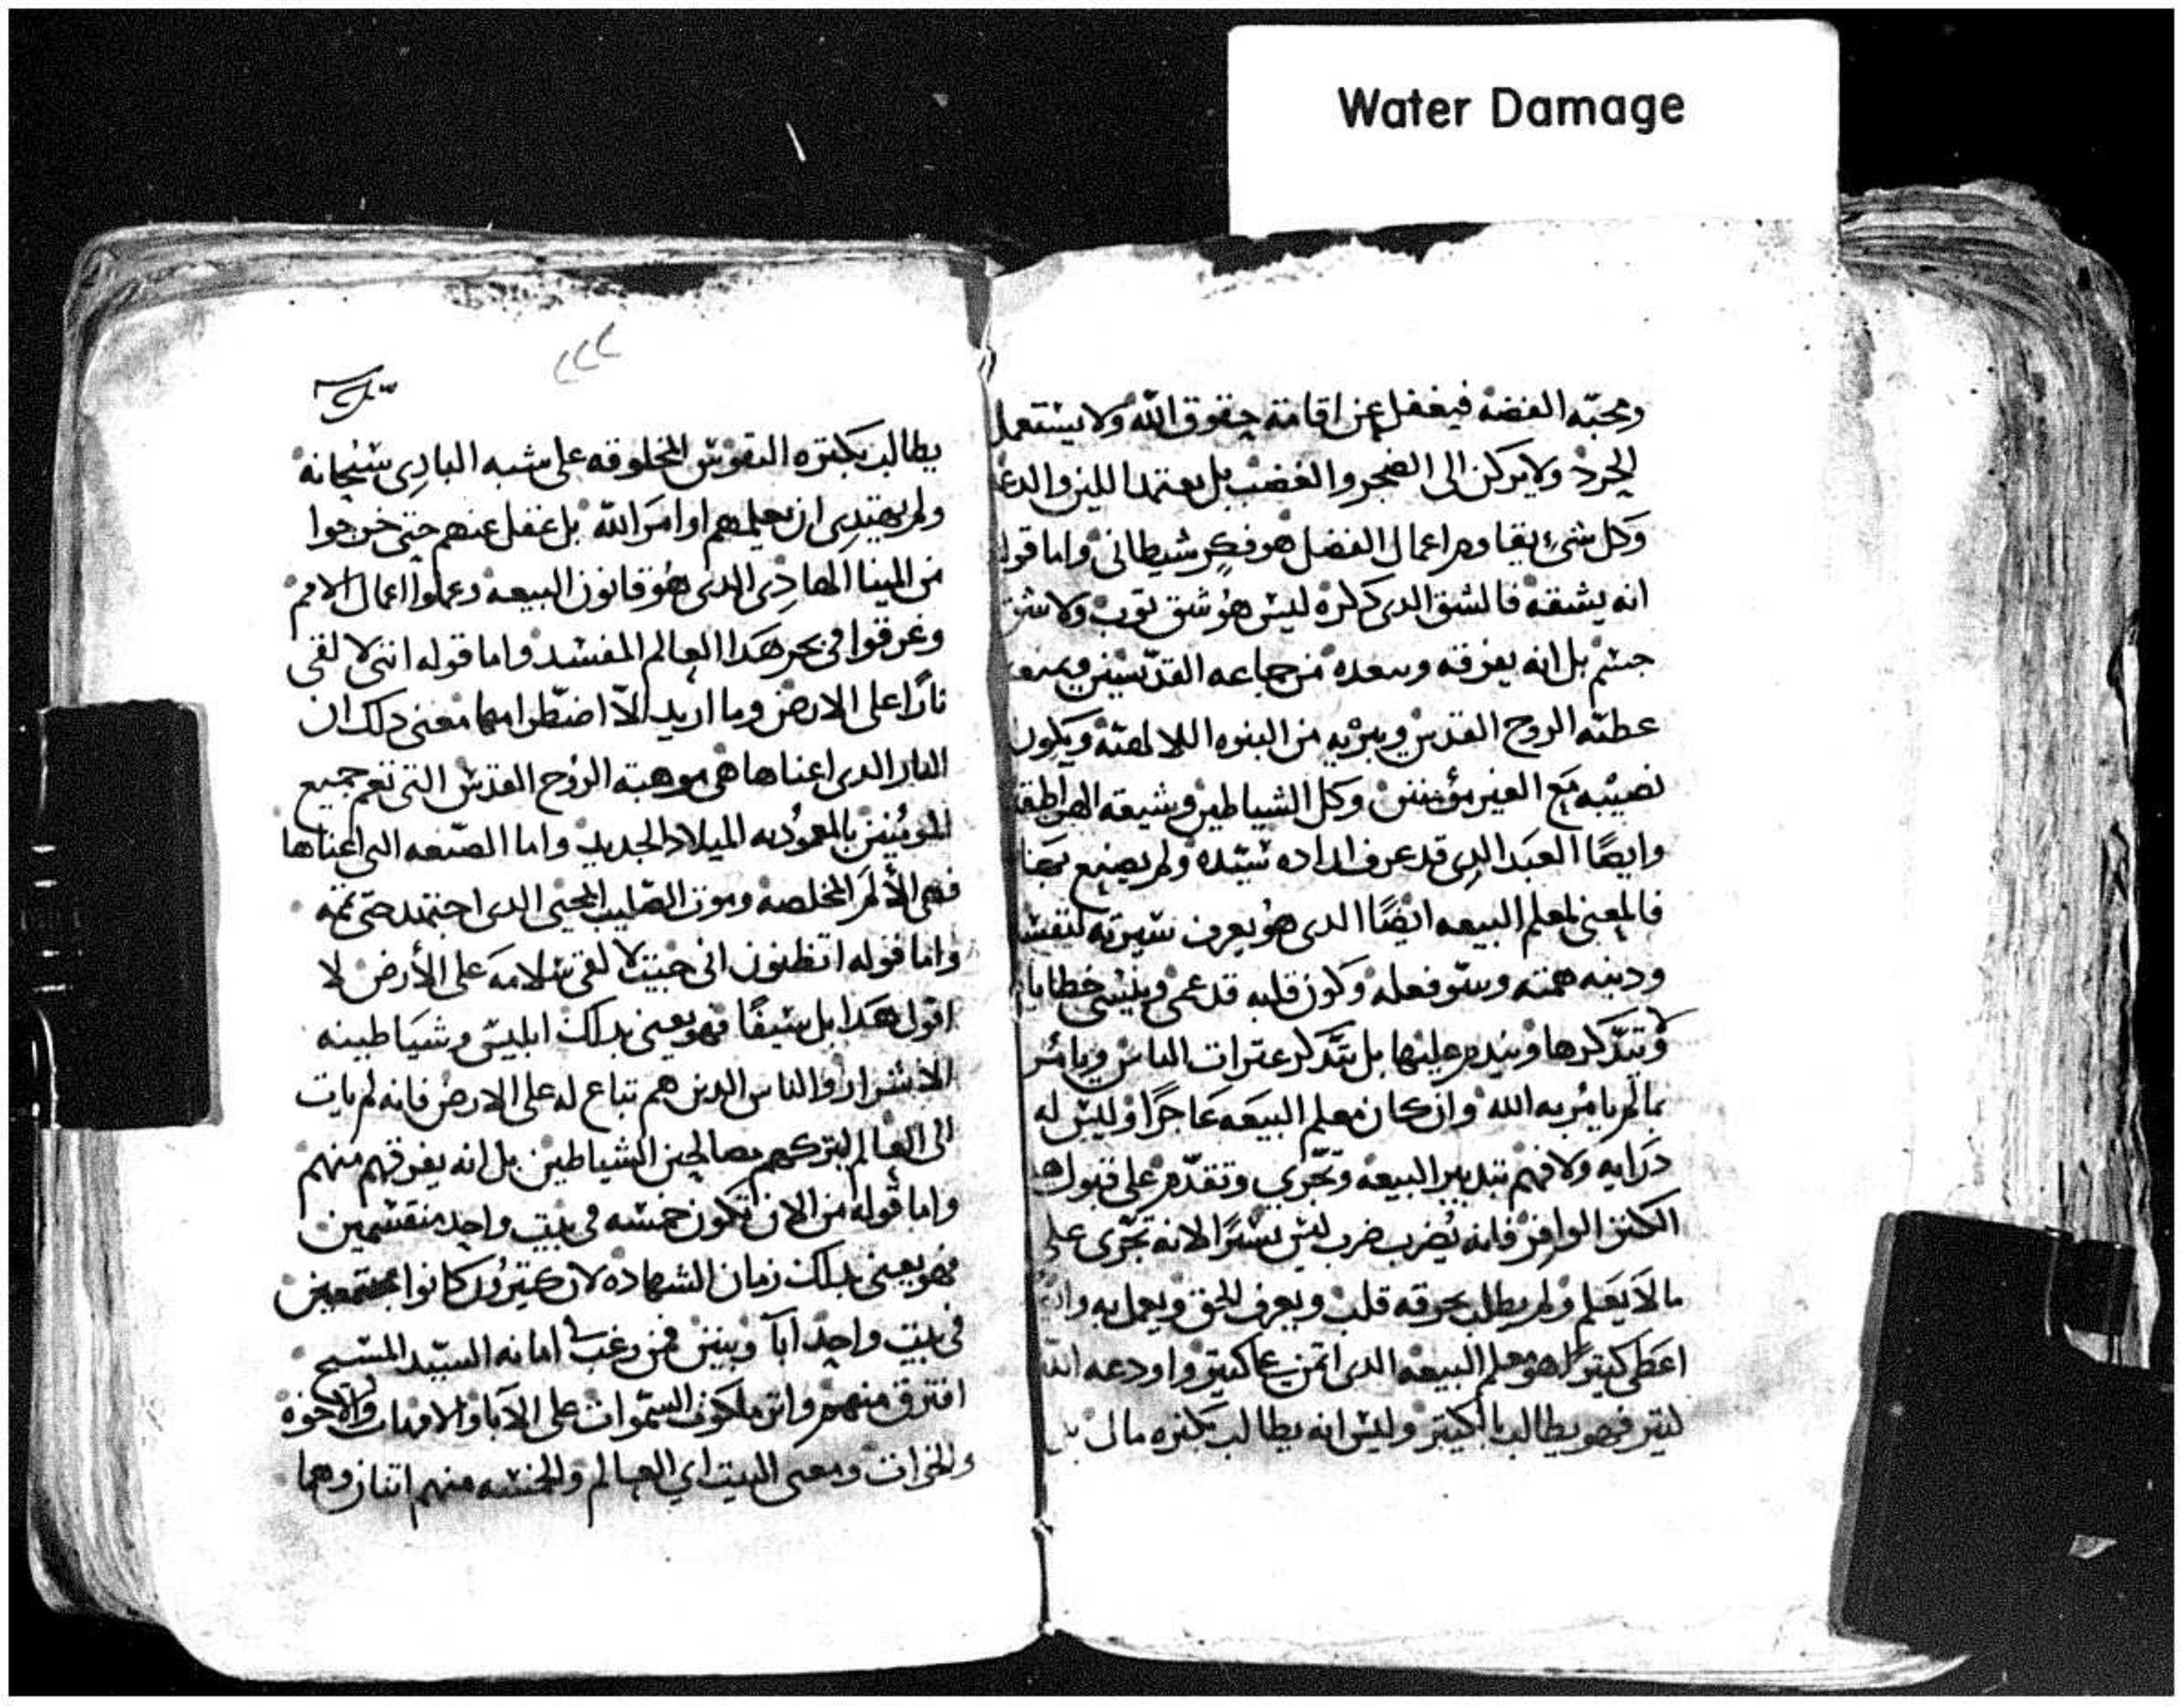 Water Damage
ومحبّه الفضه فيغفل عن اقامة حقوق الله ولا يستعمل
الحرد ولا يركن الى الضجر والغضب بل يعتمد اللين والدعه
وكل شيء يقاوم اعمال الفضل هو فكر شيطاني واما قوله
انه يشقه فالشق الدى دكره ليس هو شق توب ولا شق
جسم بل انه يفرقه وسعده من جماعه القدّيسين ويمنعه
عطيّه الروح القدس ويبريه من البنوه ويكون
نصيبه مع الغير مؤمنين وكل الشياطين وشيعته الهراطقه
وايضًا العبد الدى قد عرف اراده سيّده ولم يصنع
فالمعنى لمعلم البيعه ايضًا الدى هو يعرف سيرته لنفسه
ودينه همته وسو فعله وكون قلبه قد عمى وينسى خطاياه
ولا يتدّكرها ويندم عليها بل يتدّكر عترات الناس ويامر
بما لم يامر به الله وان كان معلم البيعه عاجزًا وليس له
درايه ولا فهم بتدبير البيعه وتجّرى وتقدّم على قبول
الكنز الوافر فانه يضرب ضرب ليس يسيرًا لانه تجّرى على
ما لا يعلم ولم يطلب بحرقه قلب ويعرف الحق ويعمل به
اعطى كتيرًا هو معلم البيعه الدى اتمن على كتير واودعه الله
كتير فهو يطالب بالكتير وليس انه يطالب بكتره مال بل
ستن
٢٢٢
يطالب بكتره النفوس المخلوقه على شبه البارى سبحانه
ولم يهتدى ان يعلمهم اوامر الله بل غفل عنهم حتى خرجوا
من المينا الهادى الدى هو قانون البيعه وعملوا اعمال الامم
وغرقوا فى بحر هدا العالم المفسد واما قوله اننى لالقى
نارًا على الارض وما اريد الّا اضطرامها معنى دلك ان
النار الدى اعناها هى موهبة الروح القدس التى تعم جميع
المومنين بالمعموديه الميلاد الجديد واما الصبغه التى اعناها
فهى الألام المخلصه وموت الصليب المحيى الدى اجتهد حتى تممه
واما قوله اتظنون انى جيت لالقى سلامه على الأرض لا
اقول هدا بل سيفًا فهو يعنى بدلك ابليس وشياطينه
الاشرار والناس الدين هم تباع له على الارض فانه لم يات
الى العالم ليتركهم مصالحين الشياطين بل انه يفرقهم منهم
واما قوله من الان تكون خمسه فى بيت واحد منقسمين
فهو يعنى بدلك زمان الشهاده لان كتيرون كانوا مجتمعين
فى بيت واحد ابآ وبنين فمن رغب فى امانه السيّد المسيح
افترق منهم واتر ملكوت السموات على الابا والامهات والاخوه
والاخوات ومعنى البيت اي العالم والخمسه منهم اتنان وهما